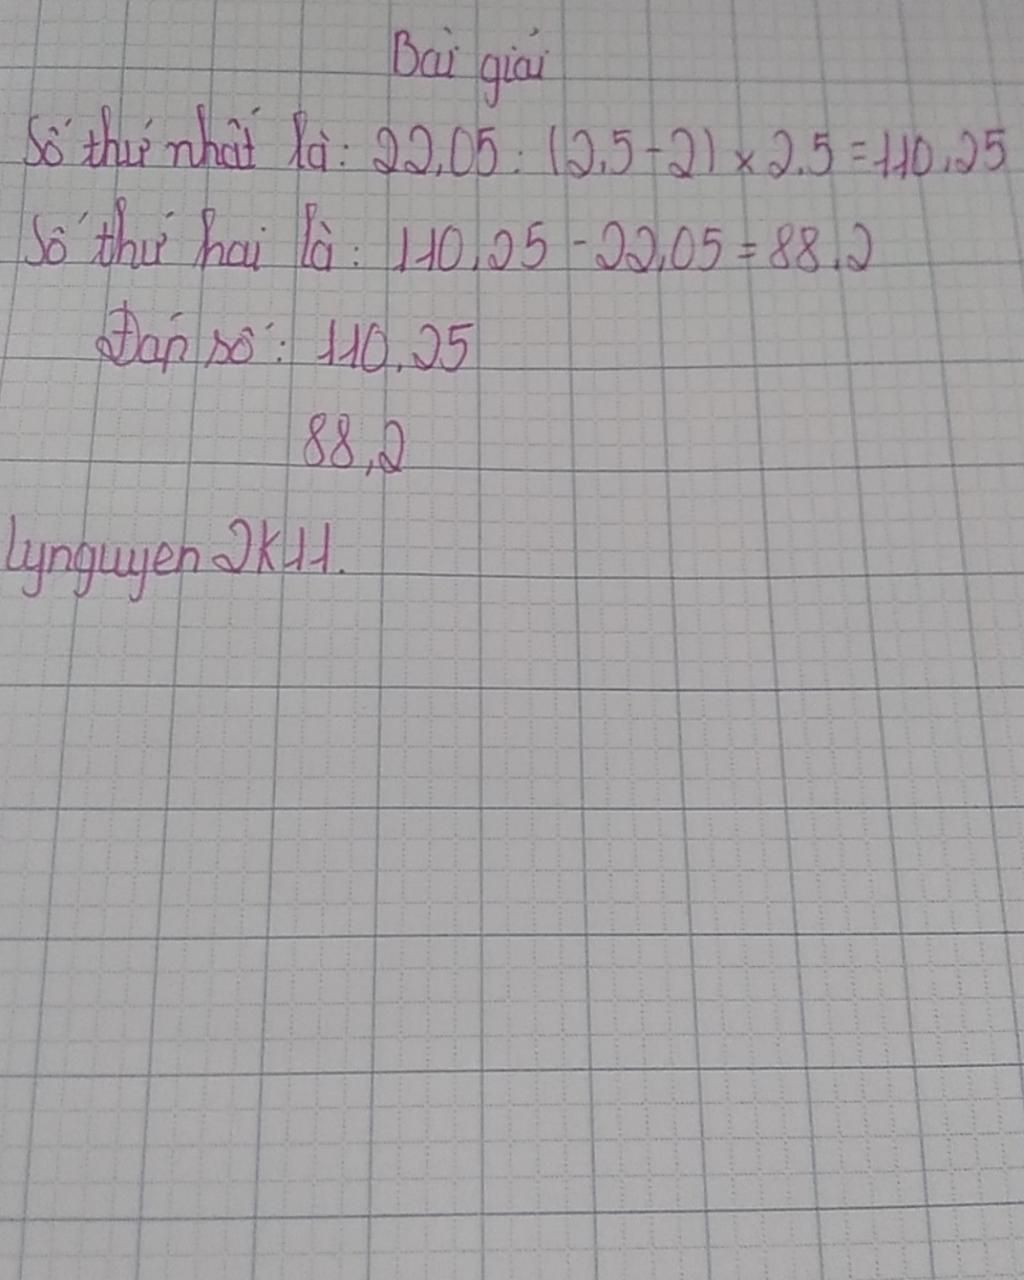 Bài giải
Số thứ nhất là: 22,05 : (2,5 - 2) × 2,5 = 110,25
Số thứ hai là: 110,25 - 22,05 = 88,2
Đáp số: 110,25
88,2
Lynguyen2K11.